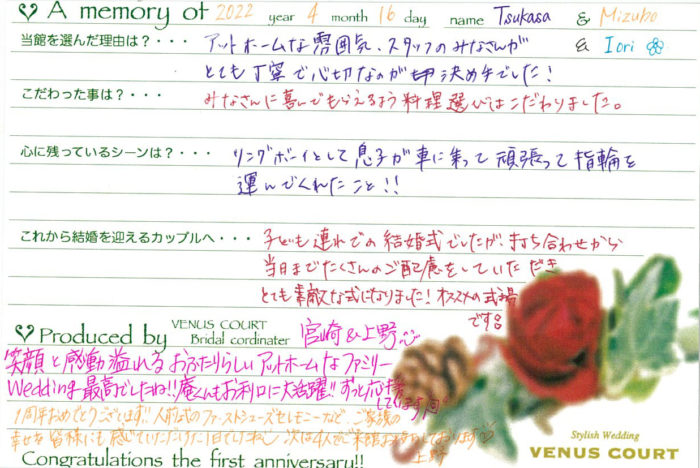 A memory of 2022 year 4 month 16 day name Tsukasa & Mizuho
& Iori
当館を選んだ理由は？・・・ アットホームな雰囲気、スタッフのみなさんが
とても丁寧で心切なのが 決め手でした！
こだわった事は？・・・ みなさんに喜んでもらえるよう料理選びはこだわりました。
心に残っているシーンは？・・・ リングボーイとして息子が車に乗って頑張って指輪を
運んでくれたこと!!
これから結婚を迎えるカップルへ・・・ 子ども連れでの結婚式でしたが、打ち合わせから
当日までたくさんのご配慮をしていただき
とても素敵な式になりました！オススメの式場
です
Produced by VENUS COURT Bridal cordinater 宮崎&上野
笑顔と感動溢れるおふたりらしいアットホームなファミリー
Wedding 最高でしたね!!庵くんもお利口に大活躍!!ずっと応援
しています
1周年おめでとうございます!!人前式のファーストシューズセレモニーなど、ご家族の
幸せを皆様にも感じていただけた1日でしたね 次は4人でご来館お待ちしております♡
上野
Congratulations the first anniversary!!
Stylish Wedding
VENUS COURT